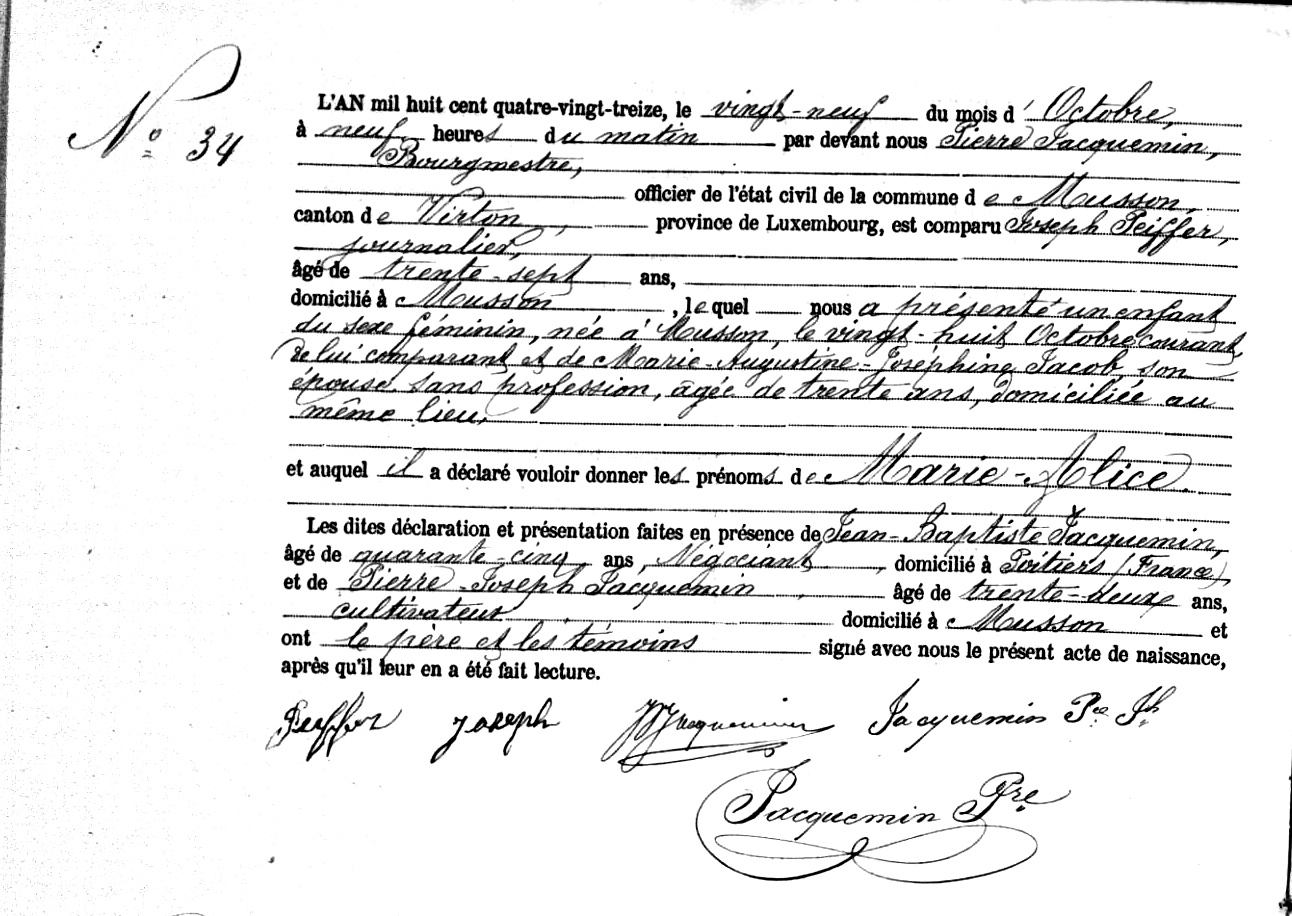 No 34
L'AN mil huit cent quatre-vingt-treize, le vingt-neuf du mois d' Octobre,
à neuf heures du matin par devant nous Pierre Jacquemin,
Bourgmestre,
officier de l'état civil de la commune de Musson,
canton de Virton, province de Luxembourg, est comparu Joseph Peiffer,
journalier,
âgé de trente-sept ans,
domicilié à Musson, lequel nous a présenté un enfant
du sexe féminin, née à Musson, le vingt-huit Octobre courant,
de lui comparant et de Marie-Augustine-Joséphine Jacob, son
épouse sans profession, âgée de trente ans, domiciliée au
même lieu,
et auquel il a déclaré vouloir donner les prénoms de Marie-Alice.
Les dites déclaration et présentation faites en présence de Jean-Baptiste Jacquemin,
âgé de quarante-cinq ans, Négociant, domicilié à Poitiers (France),
et de Pierre-Joseph Jacquemin, âgé de trente-deux ans,
cultivateur, domicilié à Musson et
ont le père et les témoins signé avec nous le présent acte de naissance,
après qu'il leur en a été fait lecture.
Peiffer Joseph JBJacquemin Jacquemin Pre Jh
Jacquemin Pre